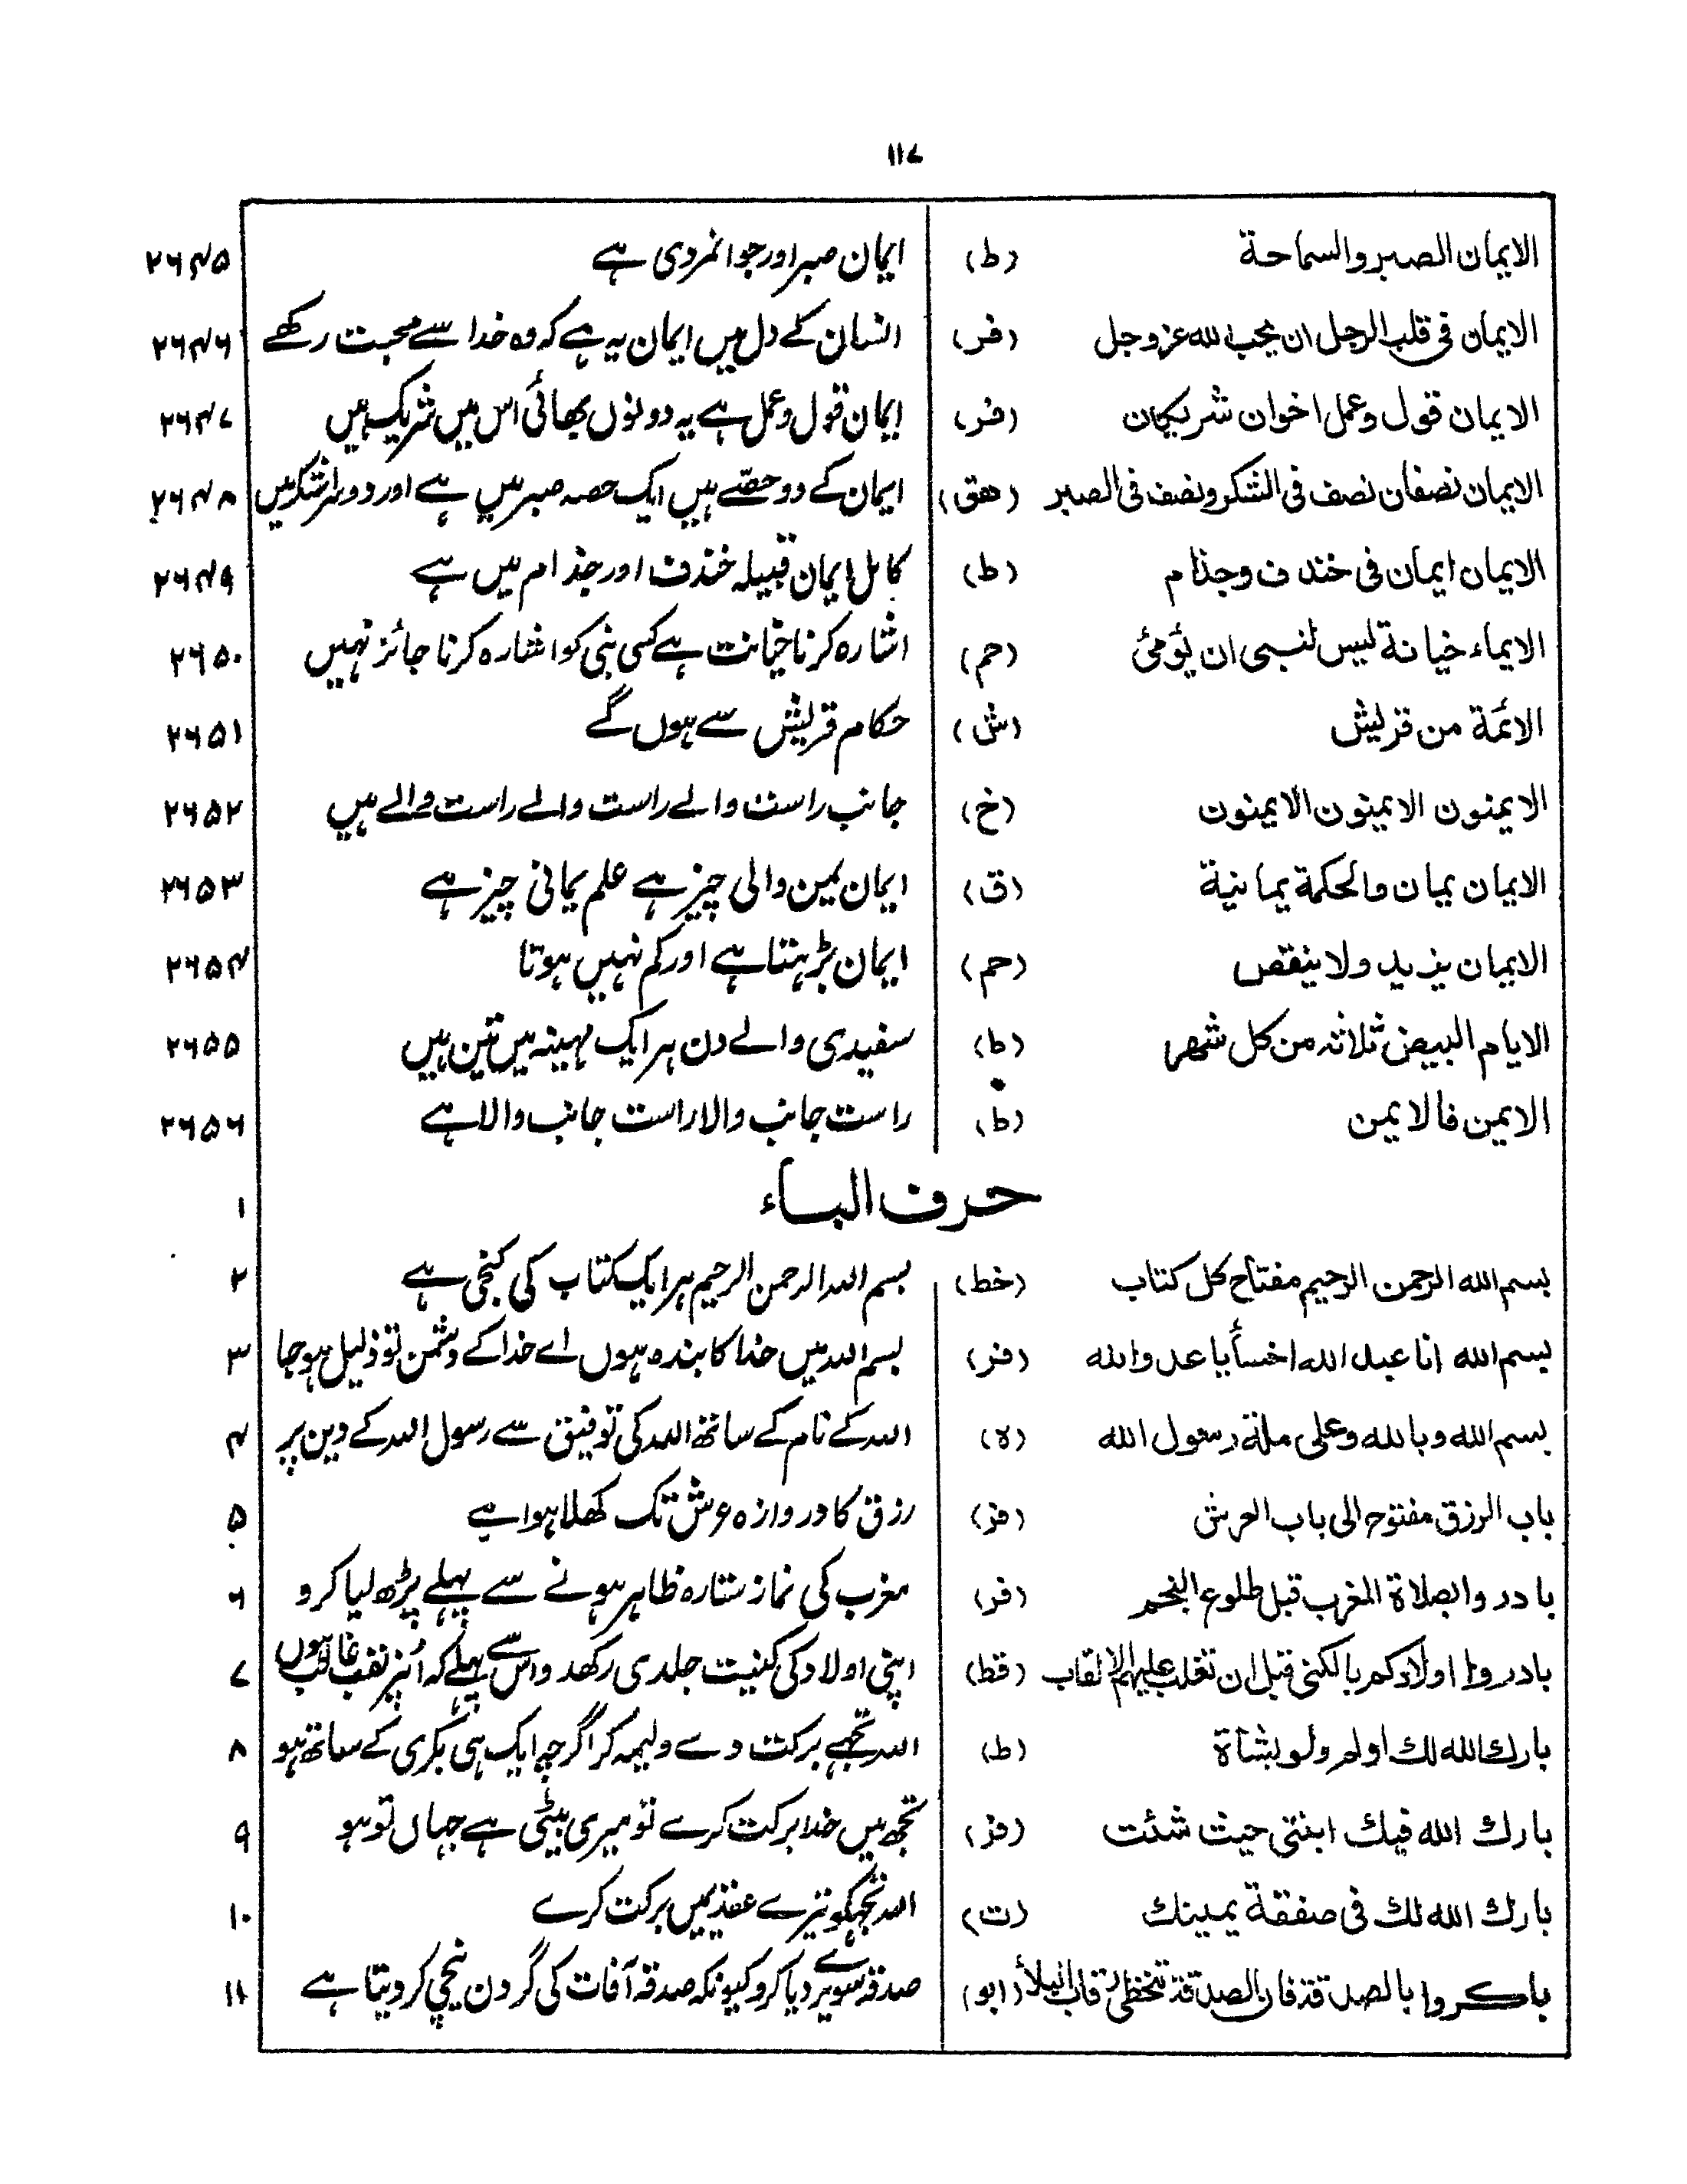 ۱۱۷
الایمان الصبر والسماحة (ط) ایمان صبر اور جوانمردی ہے ۲۶۴۵
الایمان فی قلب الرجل ان یحب الله عزوجل (فر) انسان کے دل میں ایمان یہ ہے کہ وہ خدا سے محبت رکھے ۲۶۴۶
الایمان قول وعمل اخوان شریکان (فر) ایمان قول و عمل ہے یہ دونوں بھائی اس میں شریک ہیں ۲۶۴۷
الایمان نصفان نصف فی الشکر ونصف فی الصبر (هق) ایمان کے دو حصّے ہیں ایک حصہ صبر میں ہے اور دوسرا شکر میں ۲۶۴۸
الایمان ایمان فی خندف وجذام (ط) کامل ایمان قبیلہ خندف اور جذام میں ہے ۲۶۴۹
الایماء خیانة لیس لنبی ان یؤمئ (حم) اشارہ کرنا خیانت ہے کسی نبی کو اشارہ کرنا جائز نہیں ۲۶۵۰
الائمة من قریش (ش) حکام قریش سے ہوں گے ۲۶۵۱
الایمنون الایمنون الایمنون (خ) جانب راست والے راست والے راست والے ہیں ۲۶۵۲
الایمان یمان والحکمة یمانیة (ق) ایمان یمین والی چیز ہے علم یمانی چیز ہے ۲۶۵۳
الایمان یزید ولا ینقص (حم) ایمان بڑہتا ہے اور کم نہیں ہوتا ۲۶۵۴
الایام البیض ثلاثه من کل شهر (ط) سفیدی والے دن ہر ایک مہینہ میں تین ہیں ۲۶۵۵
الایمن فالایمن (ط) راست جانب والا راست جانب والا ہے ۲۶۵۶
حرف الباء ۱
بسم الله الرحمن الرحیم مفتاح کل کتاب (خط) بسم اللہ الرحمن الرحیم ہر ایک کتاب کی کنجی ہے ۲
بسم الله انا عبد الله اخسأ یا عدو الله (فر) بسم اللہ میں خدا کا بندہ ہوں اے خدا کے دشمن تو ذلیل ہو جا ۳
بسم الله وبالله وعلی ملة رسول الله (ه) اللہ کے نام کے ساتھ اللہ کی توفیق سے رسول اللہ کے دین پر ۴
باب الرزق مفتوح الی باب العرش (فر) رزق کا دروازہ عرش تک کھلا ہوا ہے ۵
بادروا بصلاة المغرب قبل طلوع النجم (فر) مغرب کی نماز ستارہ ظاہر ہونے سے پہلے پڑھ لیا کرو ۶
بادروا اولادکم بالکنی قبل ان تغلب علیهم الالقاب (قط) اپنی اولاد کی کنیت جلدی رکھدو اس سے پہلے کہ اُنپر لقب غالب ہوں ۷
بارك الله لك اولم ولو بشاة (ط) اللہ تجھے برکت دے ولیمہ کر اگرچہ ایک ہی بکری کے ساتھ ہو ۸
بارك الله فیك ابنتی حیث شئت (فر) تجھ میں خدا برکت کرے تو میری بیٹی ہے جہاں تو ہو ۹
بارك الله لك فی صفقة یمینك (ت) اللہ تجھکو تیرے عقد یمین میں برکت کرے ۱۰
باکروا بالصدقة فان الصدقة تتخطی رقاب البلاء (ابو) صدقہ سویرے دیا کرو کیونکہ صدقہ آفات کی گردن نیچی کر دیتا ہے ۱۱